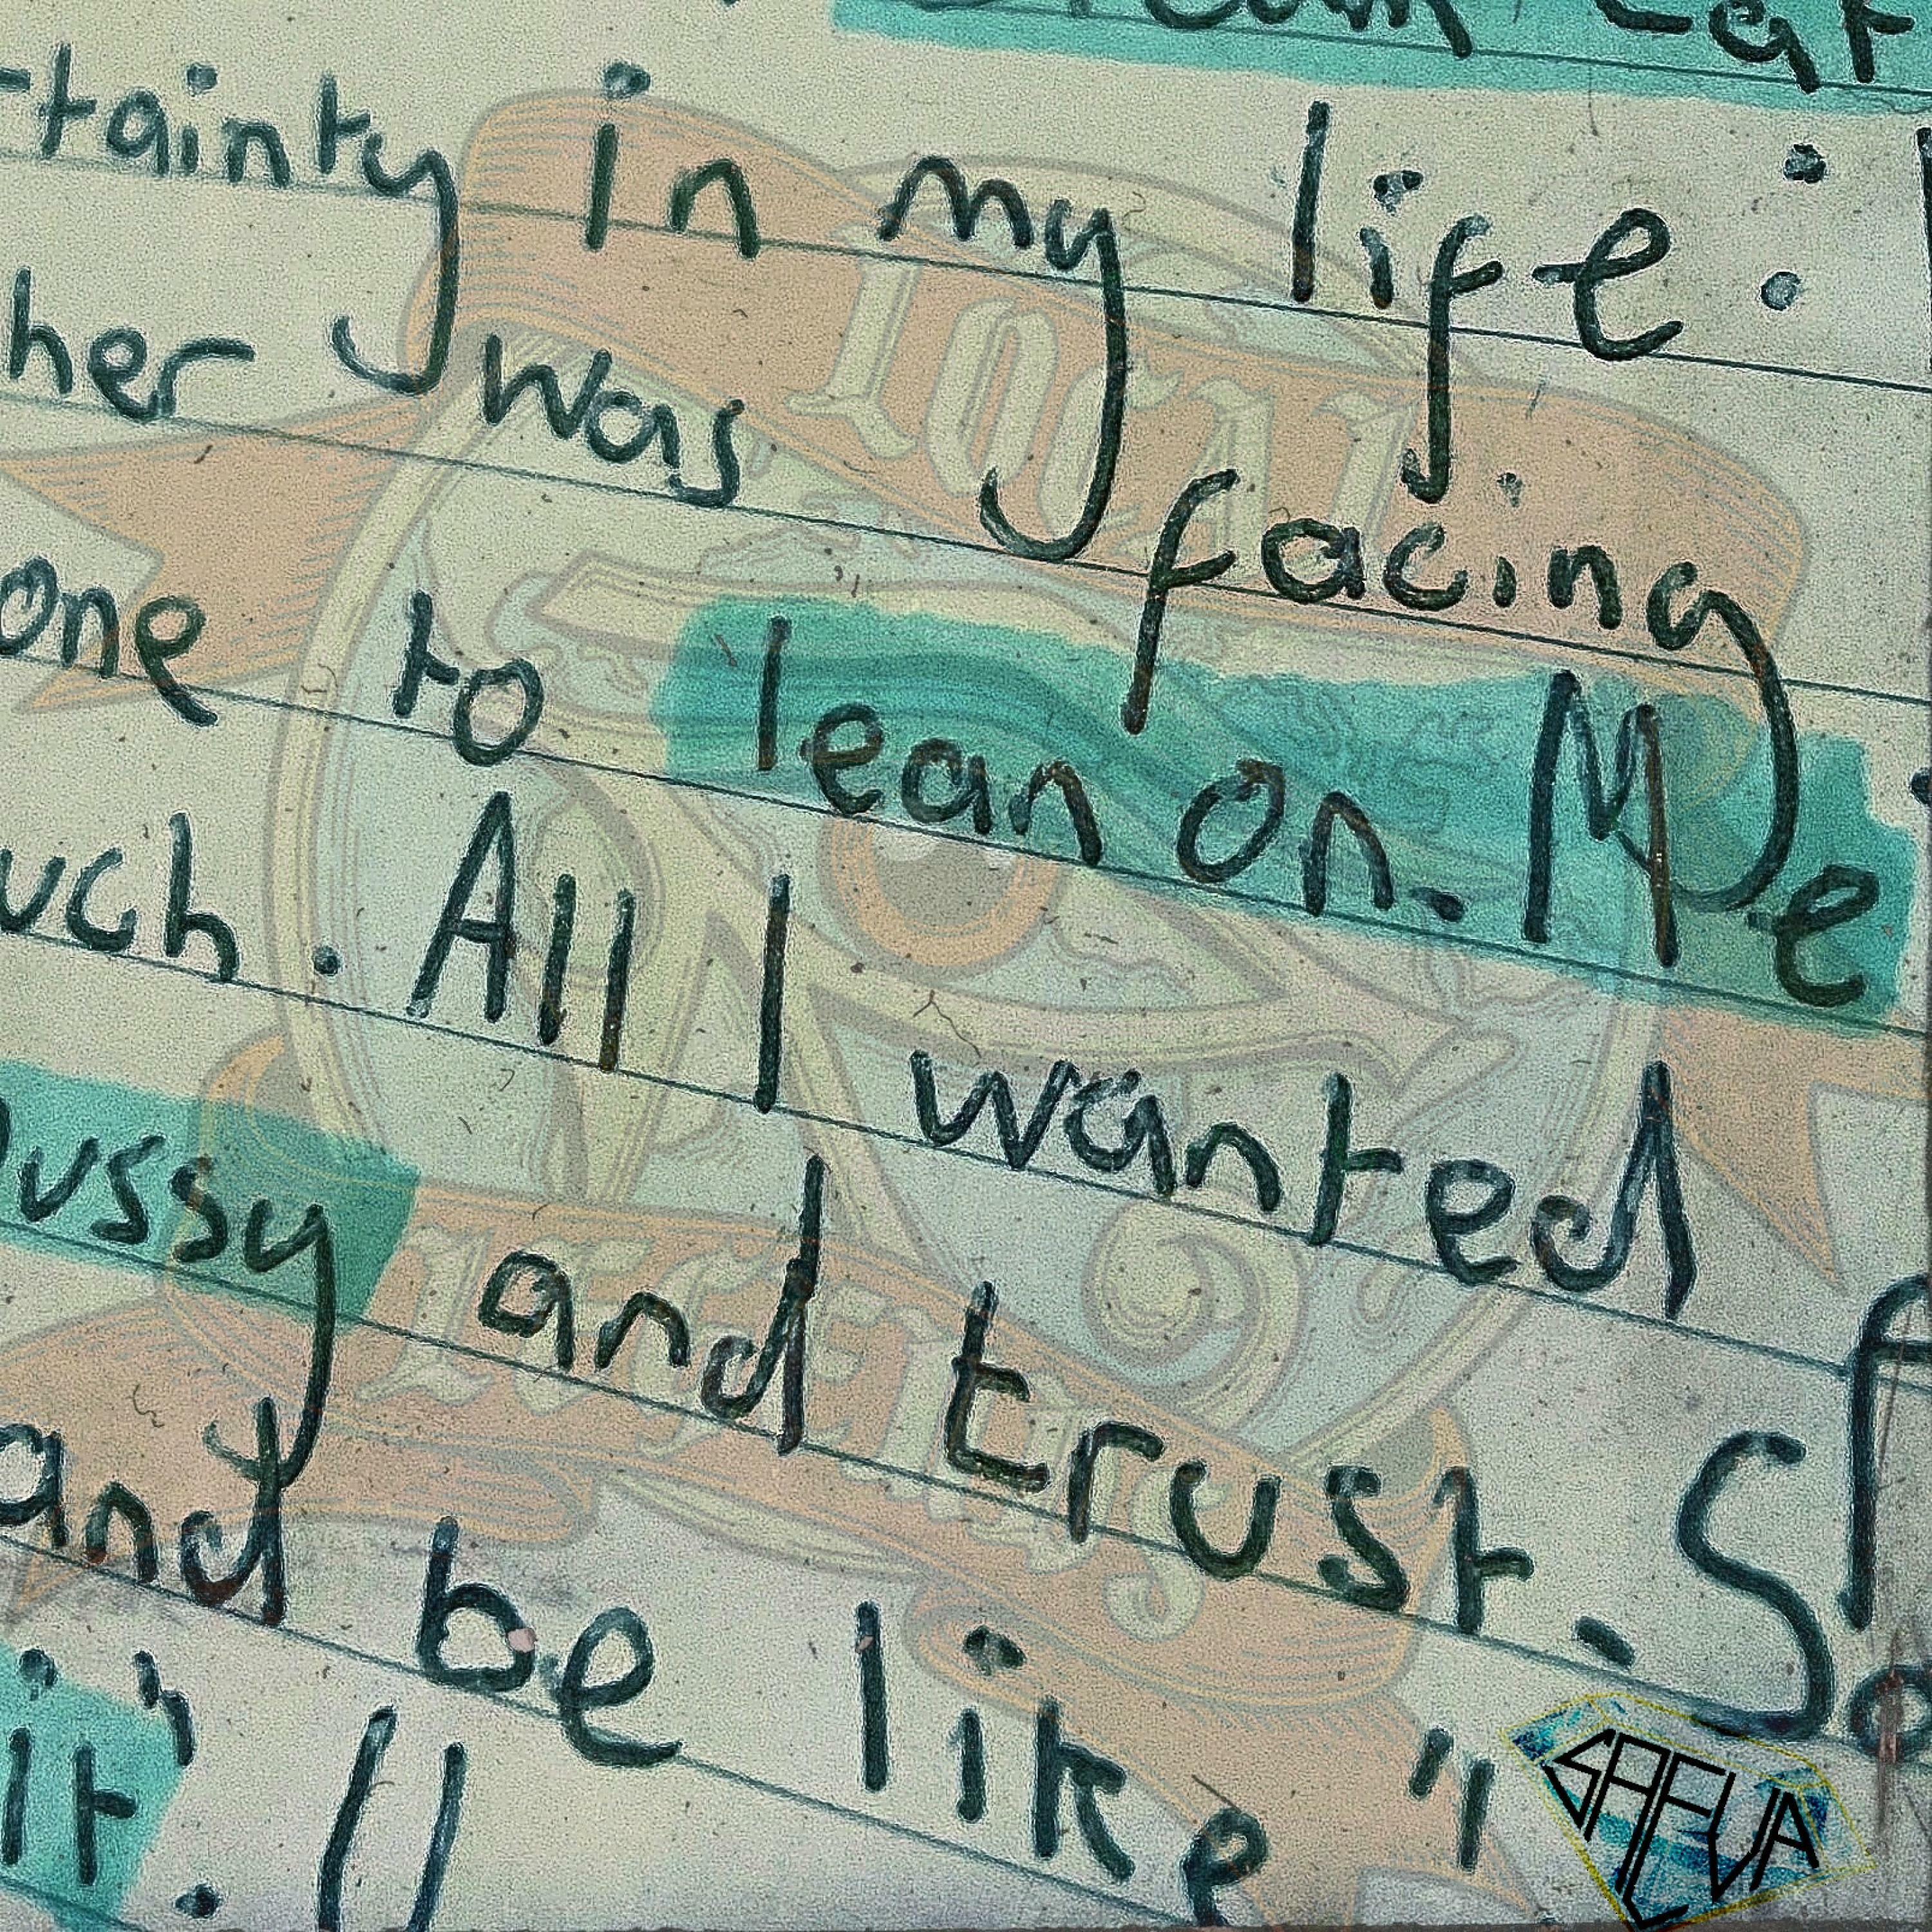 -tainty in my life :
her was facing
one to lean on. Me
uch. All I wanted
ussy and trust. So
and be like "I
it".
LOCAL